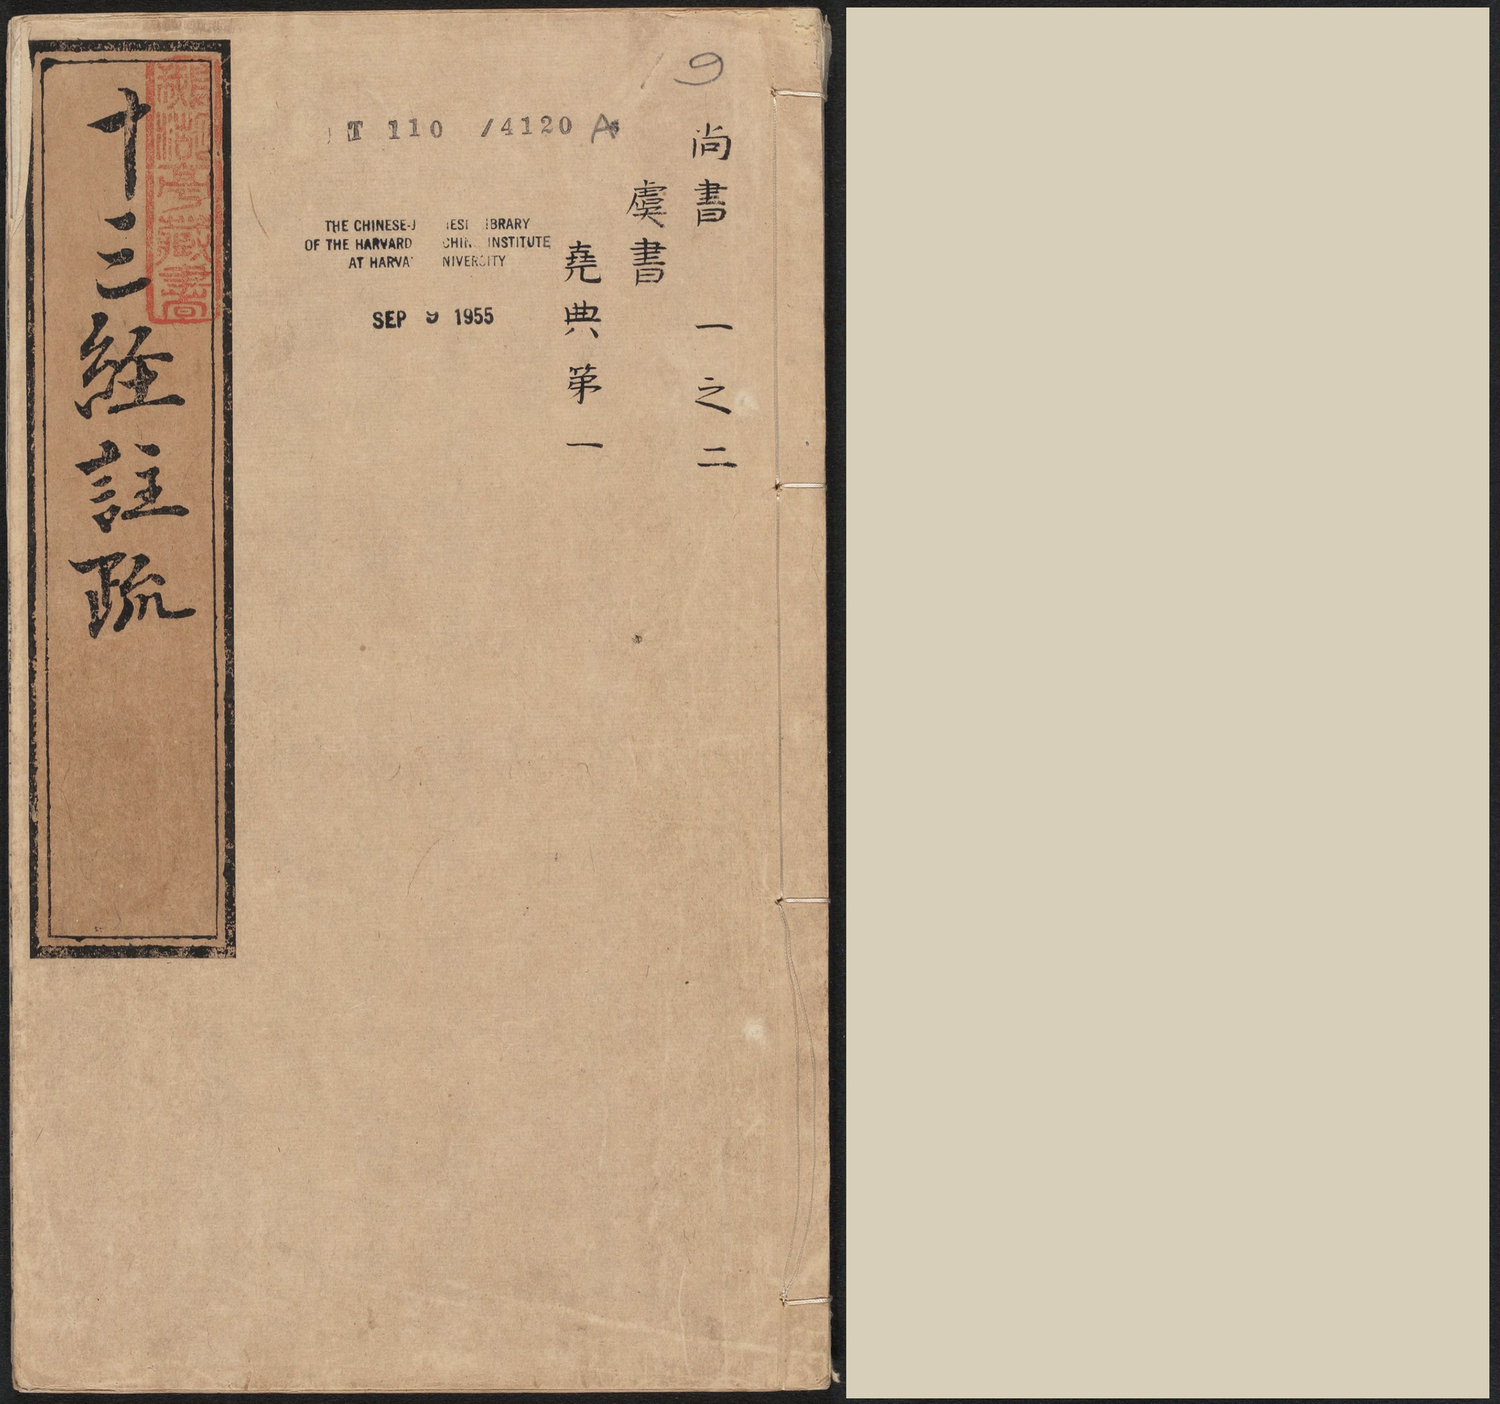 9
T 110 /4120 A
尚書 一之二
虞書
堯典第一
THE CHINESE-J ESE IBRARY
OF THE HARVARD CHIN INSTITUTE
AT HARVA NIVERSITY
SEP 9 1955
十三經註疏
湖亭藏書